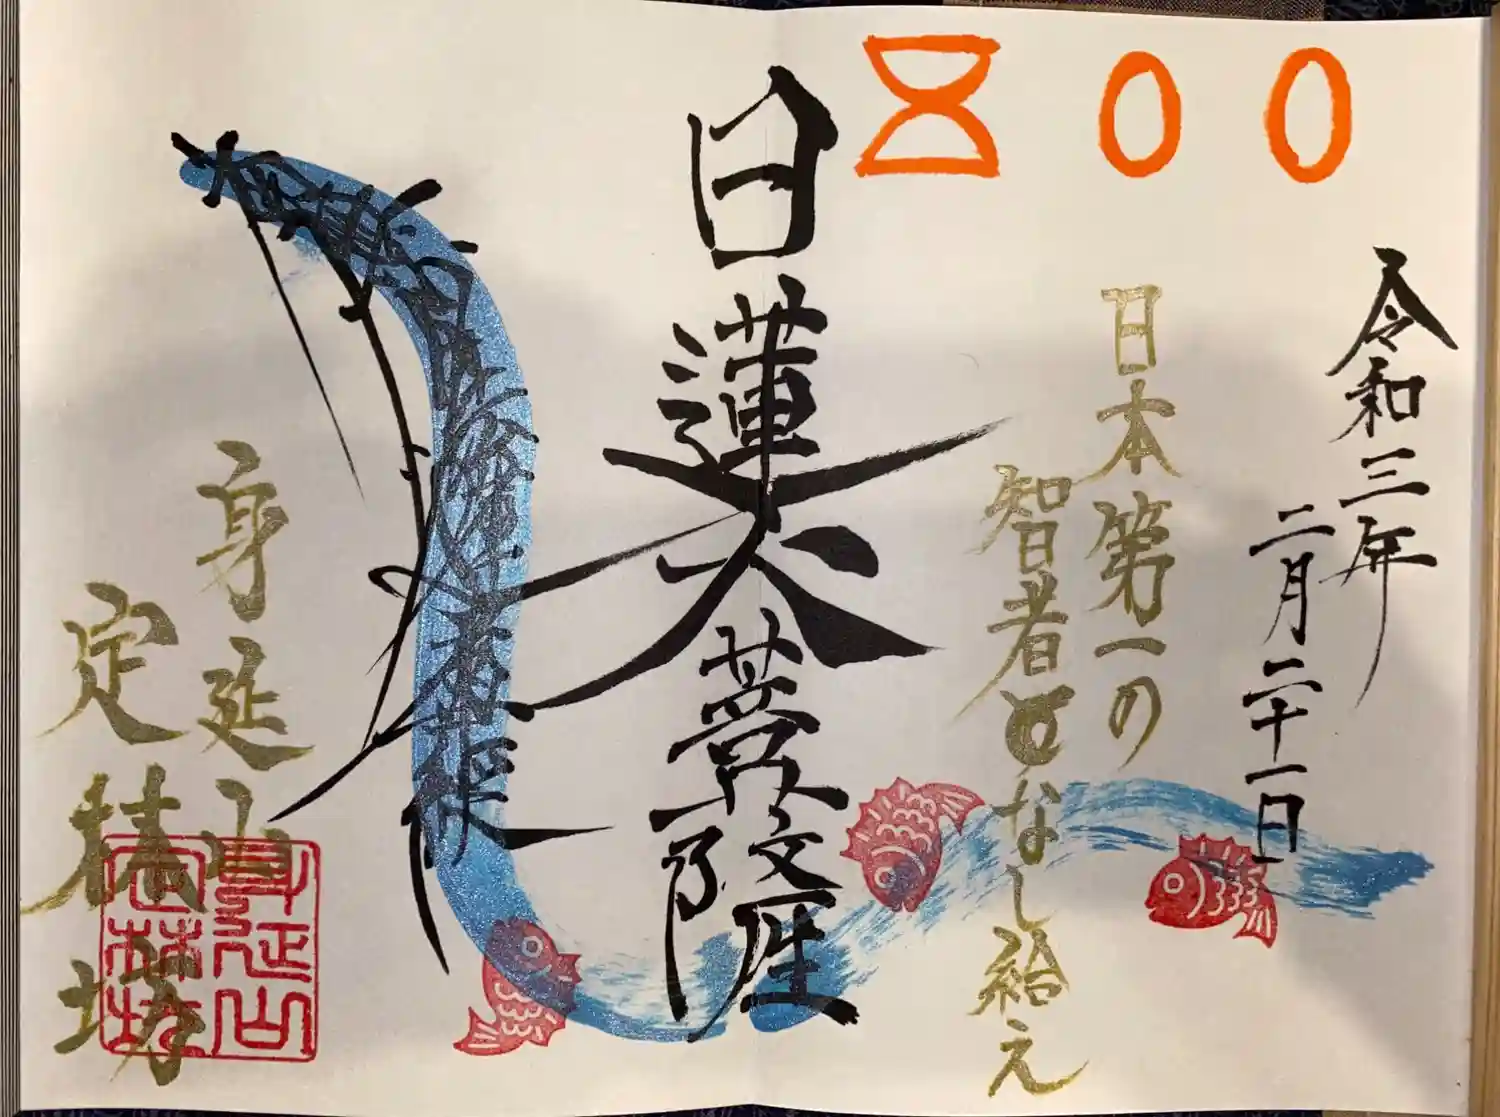 800
令和三年
二月二十一日
日本第一の
智者となし給え
日蓮大菩薩
身延山
定林坊
身延山
定林坊